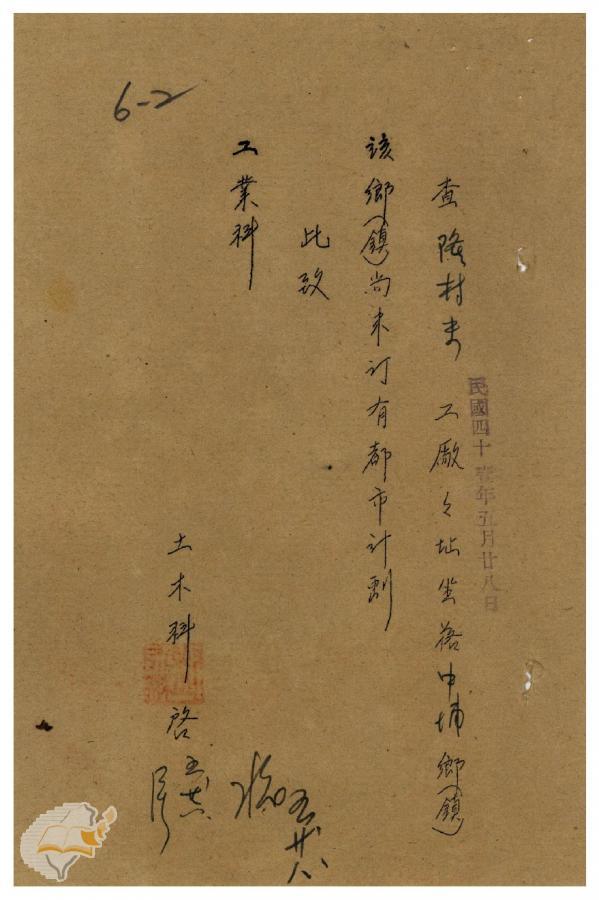 6-2
民國四十壹年五月廿八日
查隆村 工廠々址坐落中埔鄉(鎮)
該鄉(鎮)尚未訂有都市計劃
此致
工業科
土木科 啓
五廿八